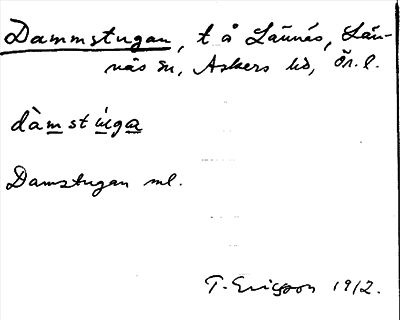 Dammstugan, t å Lännäs, Län-
näs sn, Askers hd, Ör. l.
dàmstùga
Damstugan ml.
T. Ericsson 1912.